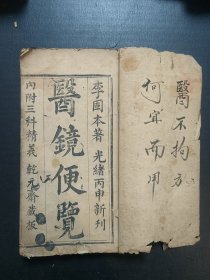 李國本著 光緒丙申新刊
醫鏡便覽
內附三科精義 乾元齋藏板
醫不拘方
何宜而用